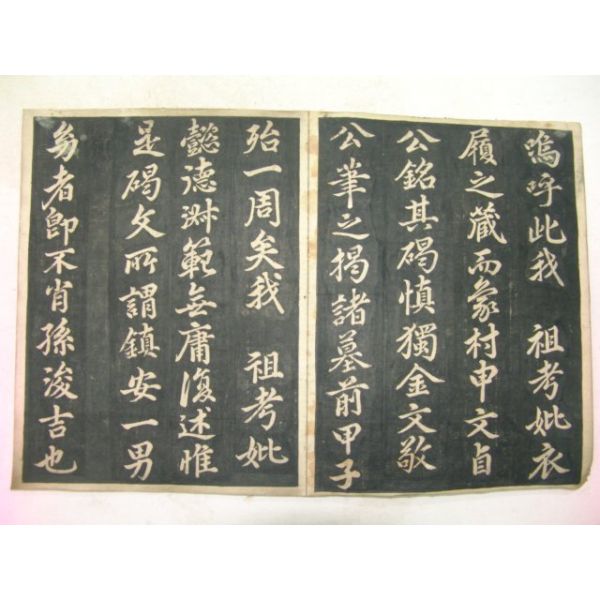 嗚呼此我 祖考妣衣
履之藏而象村申文貞
公銘其碣慎獨金文敬
公筆之揭諸墓前甲子
殆一周矣我 祖考妣
懿德淑範無庸復述惟
是碣文所謂鎮安一男
㓜者即不肖孫浚吉也